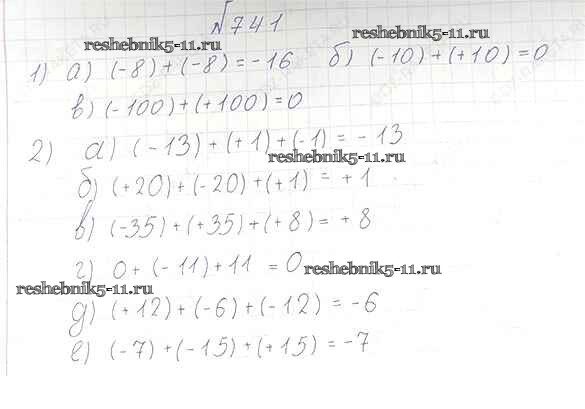 №741
reshebnik5-11.ru reshebnik5-11.ru
1) а) (-8)+(-8)=-16 б) (-10)+(+10)=0
в) (-100)+(+100)=0
2) а) (-13)+(+1)+(-1)=-13
reshebnik5-11.ru
б) (+20)+(-20)+(+1)=+1
в) (-35)+(+35)+(+8)=+8
г) 0+(-11)+11=0 reshebnik5-11.ru
reshebnik5-11.ru
д) (+12)+(-6)+(-12)=-6
е) (-7)+(-15)+(+15)=-7